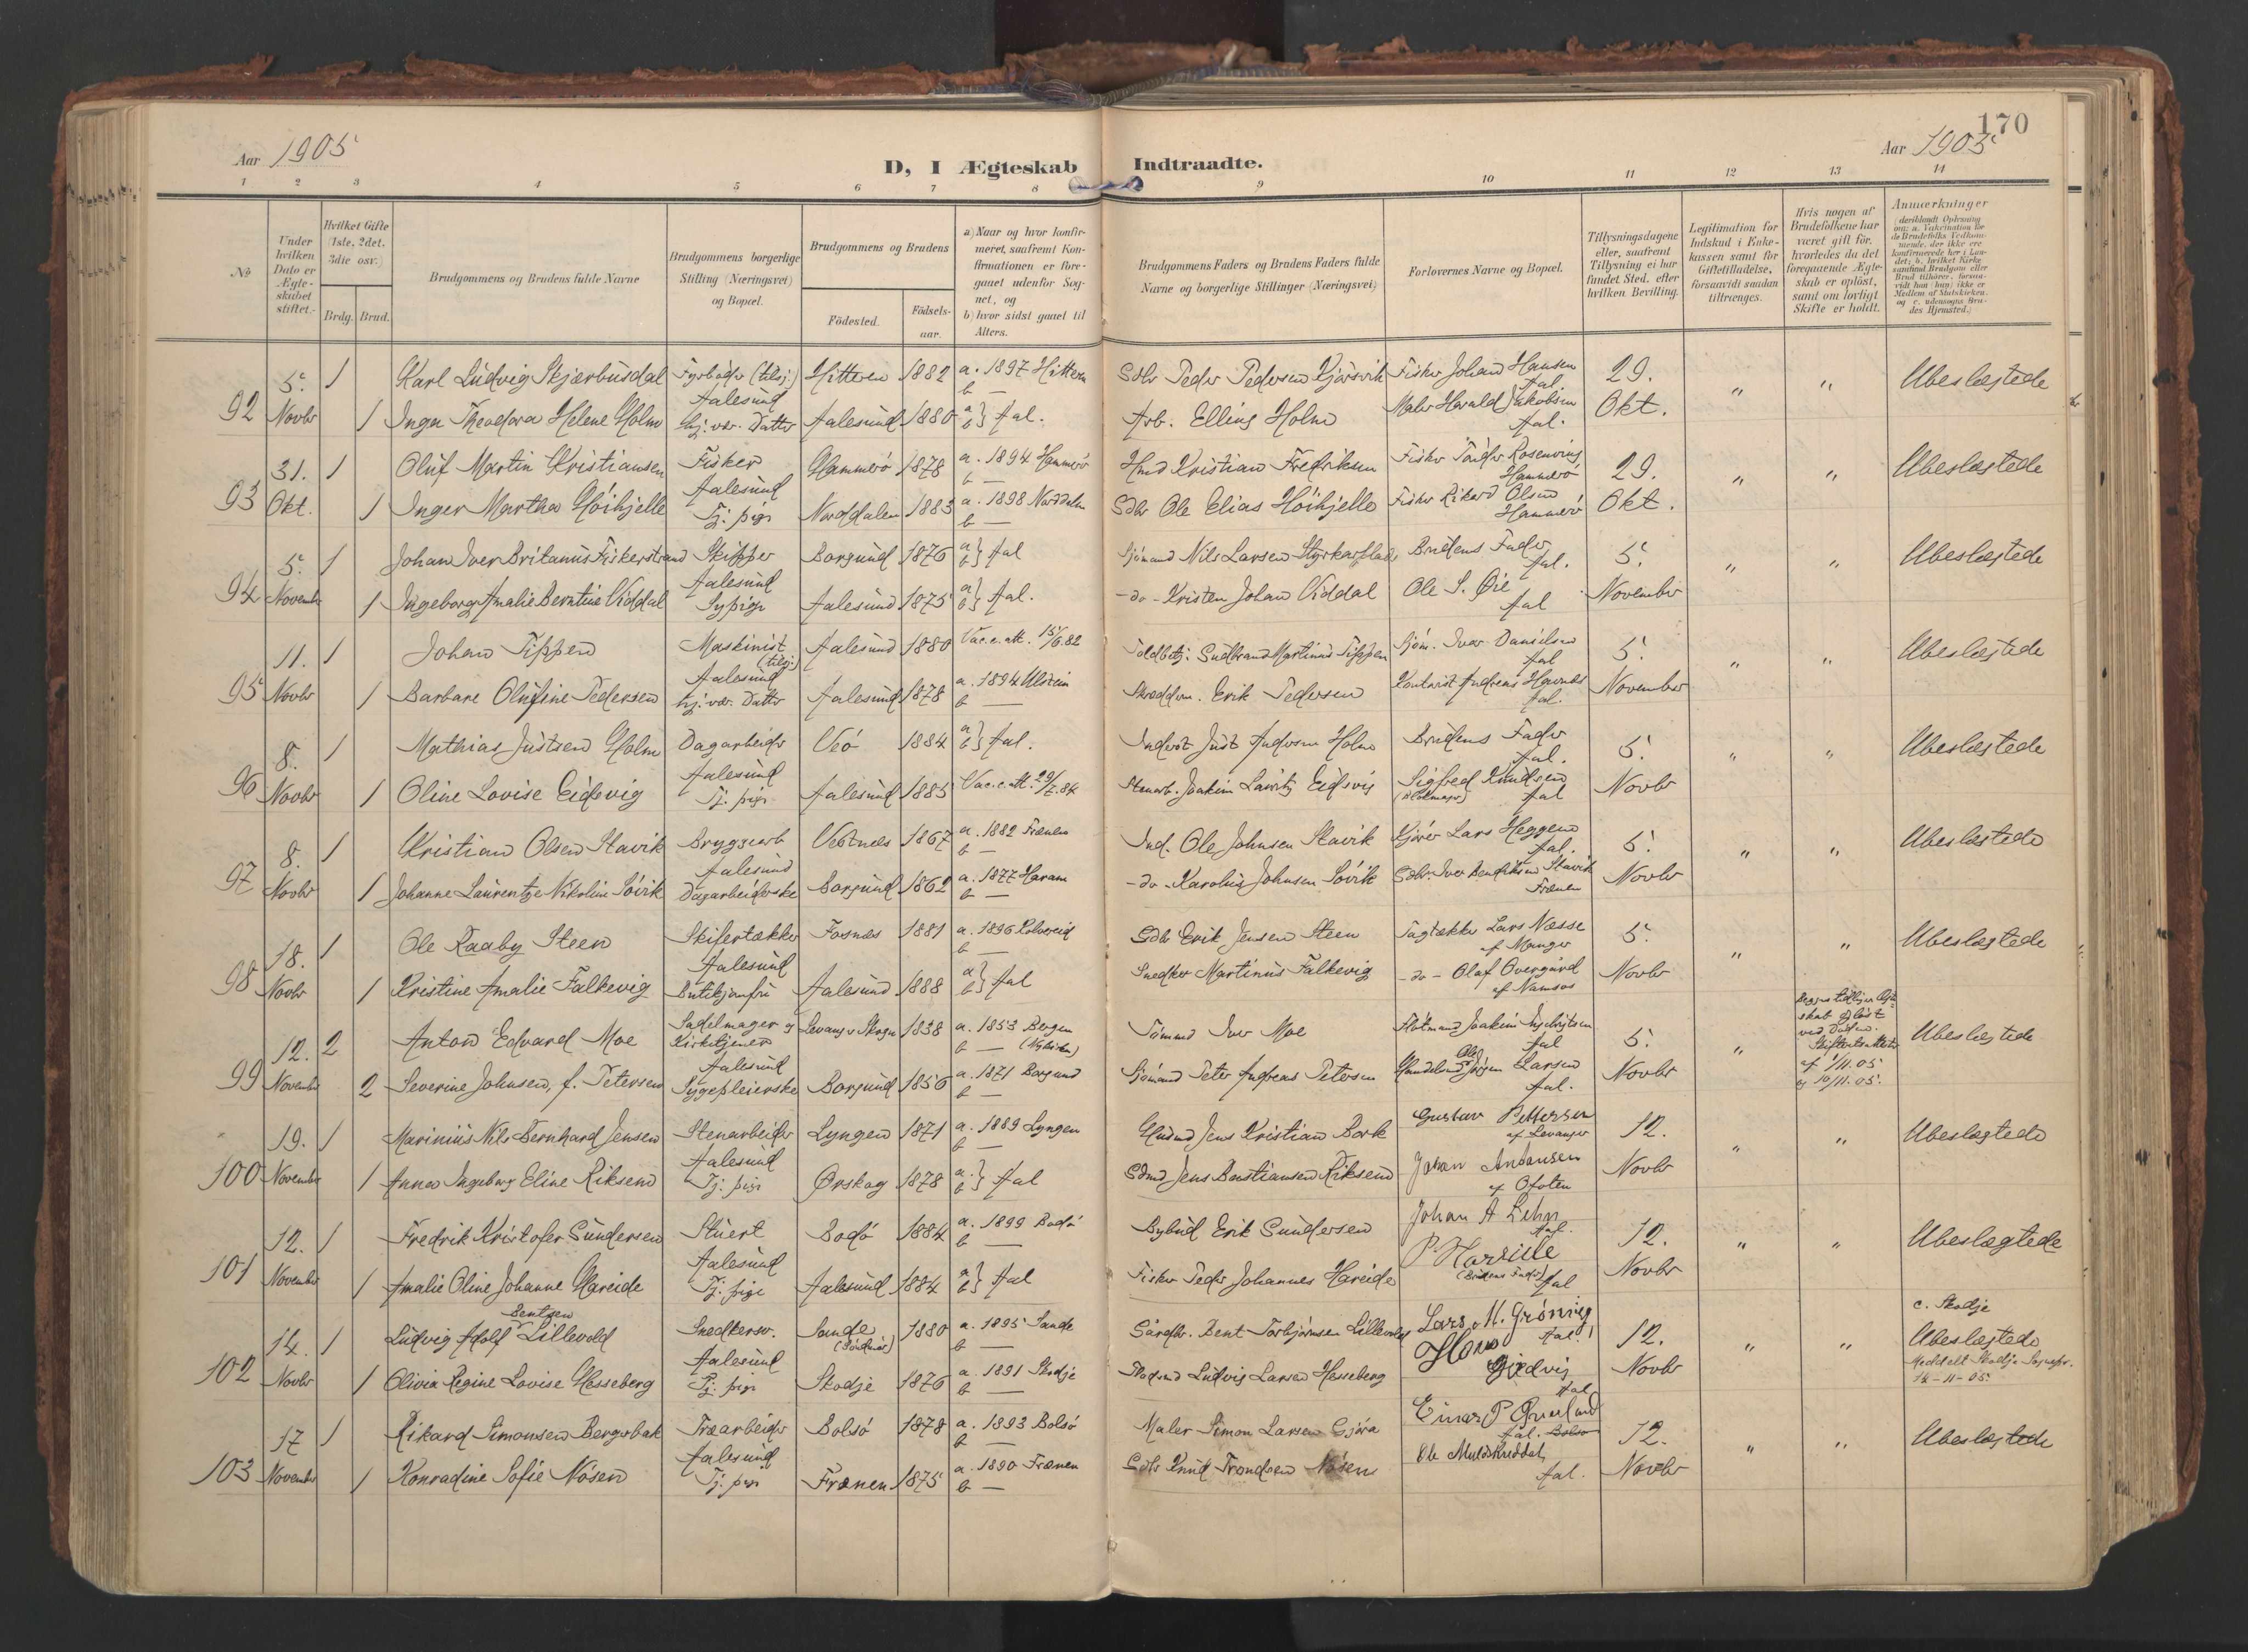 170
Aar 1905
Aar 1905
D, I Ægteskab Indtraadte.
1 2 3 4 5 6 7 8 9 10 11 12 13 14
No
Under hvilken Dato er Ægteskabet stiftet.
Hvilket Gifte (1ste, 2det, 3die osv.)
Brdg. Brud.
Brudgommens og Brudens fulde Navne
Brudgommens borgerlige Stilling (Næringsvei) og Bopæl.
Brudgommens og Brudens
Födested.
Födselsaar.
a) Naar og hvor konfirmeret, saafremt Konfirmationen er foregaaet udenfor Sognet, og
b) hvor sidst gaaet til Alters.
Brudgommens Faders og Brudens Faders fulde Navne og borgerlige Stillinger (Næringsvei)
Forlovernes Navne og Bopæl.
Tillysningsdagene eller, saafremt Tillysning ei har fundet Sted, efter hvilken Bevilling.
Legitimation for Indskud i Enkekassen samt for Giftetilladelse, forsaavidt saadan tiltrænges.
Hvis nogen af Brudefolkene har været gift för, hvorledes da det foregaaende Ægteskab er oplöst, samt om lovligt Skifte er holdt.
Anmærkninger
92 5. Novbr 1 Karl Ludvig Skjærbusdal Fyrböder (tilsj.) Aalesund Hitteren 1882 a. 1897 Hitteren b — Peder Pedersen Kjörsvik Fisker Johan Hansen Aal. 29. Okt. " " Ubeslægtede
1 Inga Theodora Helene Holm hj. vær. Datter Aalesund 1880 a b } Aal. Arb. Elling Holm Maler Harald Jakobsen Aal.
93 31. Okt. 1 Oluf Martin Kristiansen Fisker Aalesund Hammerö 1878 a. 1894 Hammerö b — Hmd Kristian Fredriksen Fisker Peder Rosenving Hammerö 29. Okt. " " Ubeslægtede
1 Inger Martha Höihjelle Tj. pige Norddalen 1883 a. 1898 Norddalen b — Gdbr Ole Elias Höihjelle Fisker Rikard Olsen Hammerö
94 5. November 1 Johan Iver Britanus Fiskerstrand Skipper Aalesund Borgund 1876 a b } Aal Sjömand Nils Larsen Brudens Fader Aal. 5. November " " Ubeslægtede
1 Ingeborg Amalie Berntine Viddal Sypige Aalesund 1875 a b } Aal. – do – Kristen Johan Viddal Ole S. Øie Aal
95 11. Novbr 1 Johan Tippen Maskinist (tilsj.) Aalesund Aalesund 1880 Vac. att. 15/6 82 Toldbetj. Gudbrand Martinus Tippen Sjöm. Iver Danielsen Aal 5. November " " Ubeslægtede
1 Barbare Olufine Pedersen hj. vær. Datter Aalesund 1878 a. 1894 Ulstein b — Skræddm. Erik Pedersen Kontorist Andreas Aal.
96 8. Novbr 1 Mathias Justsen Holm Dagarbeider Aalesund Veö 1884 a b } Aal. Inderst Just Andersen Holm Brudens Fader Aal. 5. Novbr " " Ubeslægtede
1 Oline Lovise Eidsvig Tj. pige Aalesund 1885 Vac. att. Stenarb. Joakim Lauritz Eidsvig Sigfred Knudsen Aal
97 8. Novbr 1 Kristian Olsen Stavik Bryggearb Aalesund Vestnes 1867 a. 1882 Frænen b — Ind. Ole Johnsen Stavik Kjörer Lars Heggem Aal. 5. Novbr " " Ubeslægtede
1 Johanne Laurentze Nikoline Sövik Dagarbeiderske Borgund 1862 a. 1877 Haram b — – do – Karolus Johnsen Sövik Gdbr. Iver Bendiksen Stavik Frænen
98 18. Novbr 1 Ole Raaby Steen Skifertækker Aalesund Fosnæs 1881 a. 1896 Kolvereid b — Gdbr Erik Jensen Steen Tagtækker Lars Næsse af Manger 5. Novbr " " Ubeslægtede
1 Kristine Amalie Falkevig Butikjomfru Aalesund 1888 a b } Aal Snedker Martinus Falkevig – do – Olaf Overgård af Namsos
99 12. November 2 Anton Edvard Moe Sadelmager og Kirketjener Aalesund Levanger Skogn 1838 a. 1853 Bergen b — (Nykirken) Tömmd Iver Moe Flötmand Joakim Ingebrigtsen Aal 5. Novbr " Begges tidligere Ægteskab oplöst ved Döden. Skifteretsattester af 1/11.05 og 10/11.05. Ubeslægtede
2 Severine Johnsen, f. Petersen Sygepleierske Borgund 1856 a. 1871 Borgund b — Sjömand Peter Andreas Petersen Handelsmd Jörgen Larsen Aal.
100 19. November 1 Marinius Nils Bernhard Jensen Stenarbeider Aalesund Lyngen 1871 a. 1889 Lyngen b — Husmd Jens Kristian Bork Gustav Pettersen af Levanger 12. Novbr " " Ubeslægtede
1 Anna Ingeborg Eline Riksem Tj. pige Ørskog 1878 a. b } Aal Gdmd Jens Bastiansen Riksem Johan Antonsen af Ofoten
101 12. November 1 Fredrik Kristofer Gundersen Stuert Aalesund Bodö 1884 a. 1899 Bodö b — Bybud Erik Gundersen Johan A Lehn Aal. 12. Novbr " " Ubeslægtede
1 Amalie Oline Johanne Hareide Tj. pige Aalesund 1884 a b } Aal Fisker Peder Johannes Hareide P. Hareide (Brudens Fader) Aal
102 14. Novbr 1 Ludvig Adolf Bentsen Lillevold Snedkersv. Aalesund Sande (Söndmör) 1880 a. 1895 Sande b — Gårdbr. Bent Torbjörnsen Lillevold Lars M. Grönnieg Aal. 12. Novbr " " c. Skodje Ubeslægtede Meddelt Skodje Sognepr. 14–11–05
1 Olivia Regine Lovise Hesseberg Tj. pige Skodje 1876 a. 1891 Skodje b — Ludvig Larsen Hesseberg Hans Gjedvig Aal
103 17 November 1 Rikard Simonsen Bergerbak Træarbeider Aalesund Bolsö 1878 a. 1893 Bolsö b — Maler Simon Larsen Gjöra Einar P Aal. Bolsö 12. Novbr " " Ubeslægtede
1 Konradine Sofie Nösen Tj. pige Frænen 1875 a. 1890 Frænen b — Gdbr Knud Trondsen Nösen Ole Muldskreddal Aal.